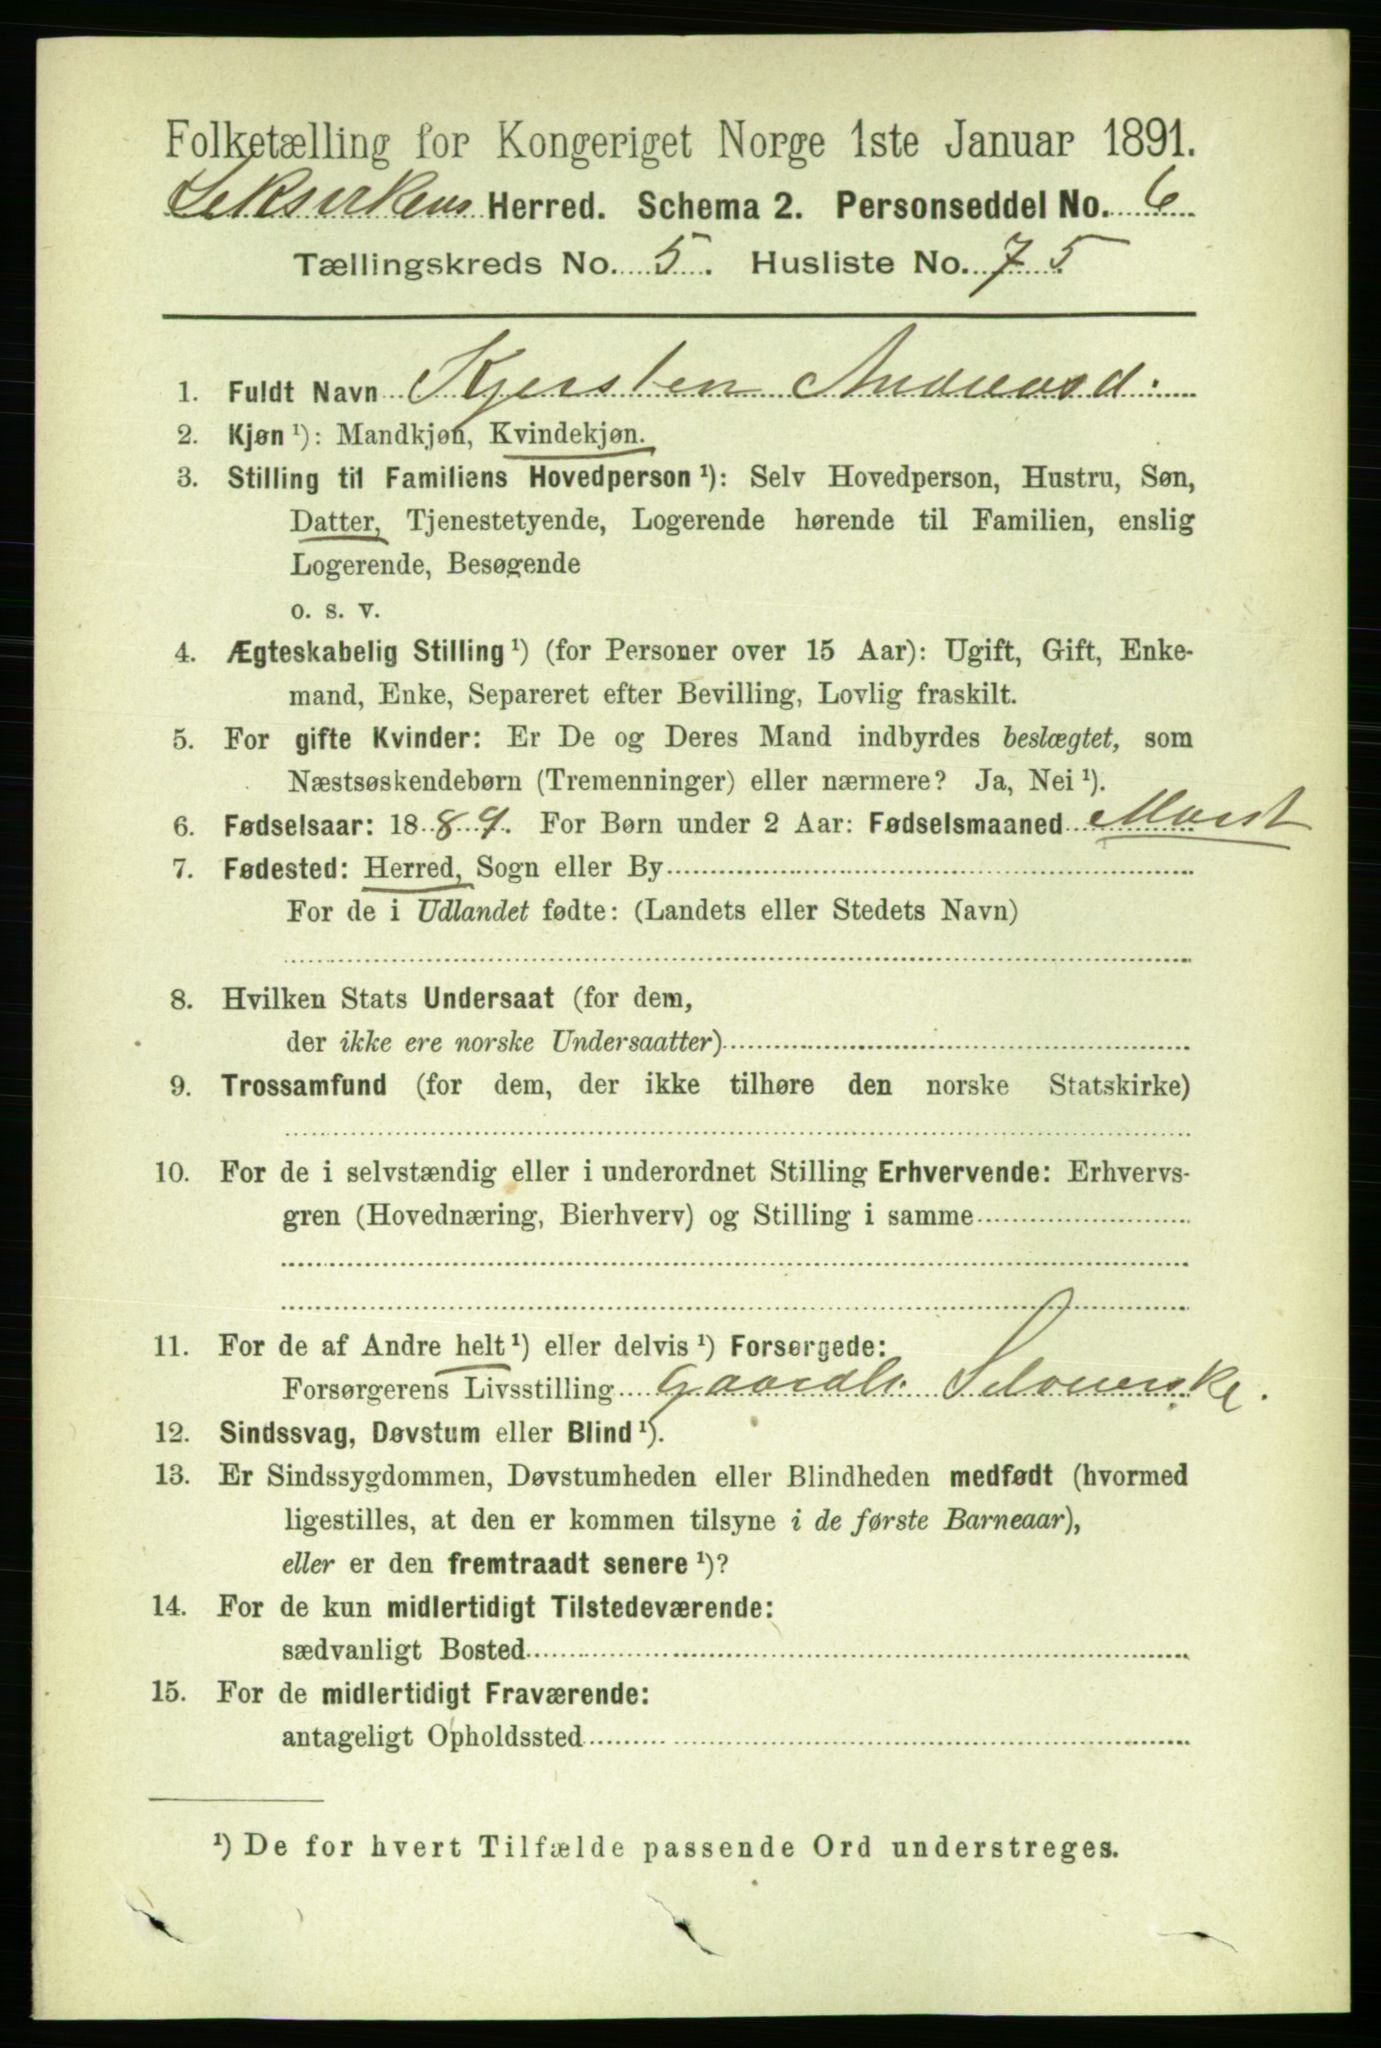 Folketælling for Kongeriget Norge 1ste Januar 1891.
Herred. Schema 2. Personseddel No. 6
Tællingskreds No. 5. Husliste No. 75
1. Fuldt Navn Kjersten Andreasd:
2. Kjøn ¹): Mandkjøn, Kvindekjøn.
3. Stilling til Familiens Hovedperson ¹): Selv Hovedperson, Hustru, Søn,
Datter, Tjenestetyende, Logerende hørende til Familien, enslig
Logerende, Besøgende
o. s. v.
4. Ægteskabelig Stilling ¹) (for Personer over 15 Aar): Ugift, Gift, Enke-
mand, Enke, Separeret efter Bevilling, Lovlig fraskilt.
5. For gifte Kvinder: Er De og Deres Mand indbyrdes beslægtet, som
Næstsøskendebørn (Tremenninger) eller nærmere? Ja, Nei ¹).
6. Fødselsaar: 1889. For Børn under 2 Aar: Fødselsmaaned Marst
7. Fødested: Herred, Sogn eller By
For de i Udlandet fødte: (Landets eller Stedets Navn)
8. Hvilken Stats Undersaat (for dem,
der ikke ere norske Undersaatter)
9. Trossamfund (for dem, der ikke tilhøre den norske Statskirke)
10. For de i selvstændig eller i underordnet Stilling Erhvervende: Erhvervs-
gren (Hovednæring, Bierhverv) og Stilling i samme
11. For de af Andre helt ¹) eller delvis ¹) Forsørgede:
Forsørgerens Livsstilling Gaardb. Selveierske.
12. Sindssvag, Døvstum eller Blind ¹).
13. Er Sindssygdommen, Døvstumheden eller Blindheden medfødt (hvormed
ligestilles, at den er kommen tilsyne i de første Barneaar),
eller er den fremtraadt senere ¹)?
14. For de kun midlertidigt Tilstedeværende:
sædvanligt Bosted
15. For de midlertidigt Fraværende:
antageligt Opholdssted
¹) De for hvert Tilfælde passende Ord understreges.